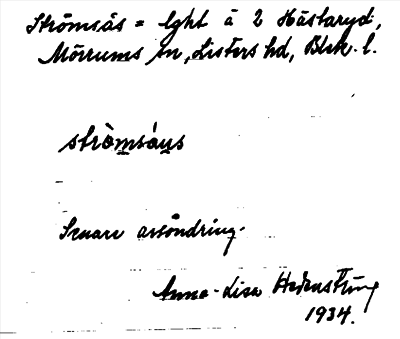 Strömsås = lght å 2 Hästaryd,
Mörrums sn, Listers hd, Blek. l.
strömsåus
Senare avsöndring.
Anna-Lisa
1934.